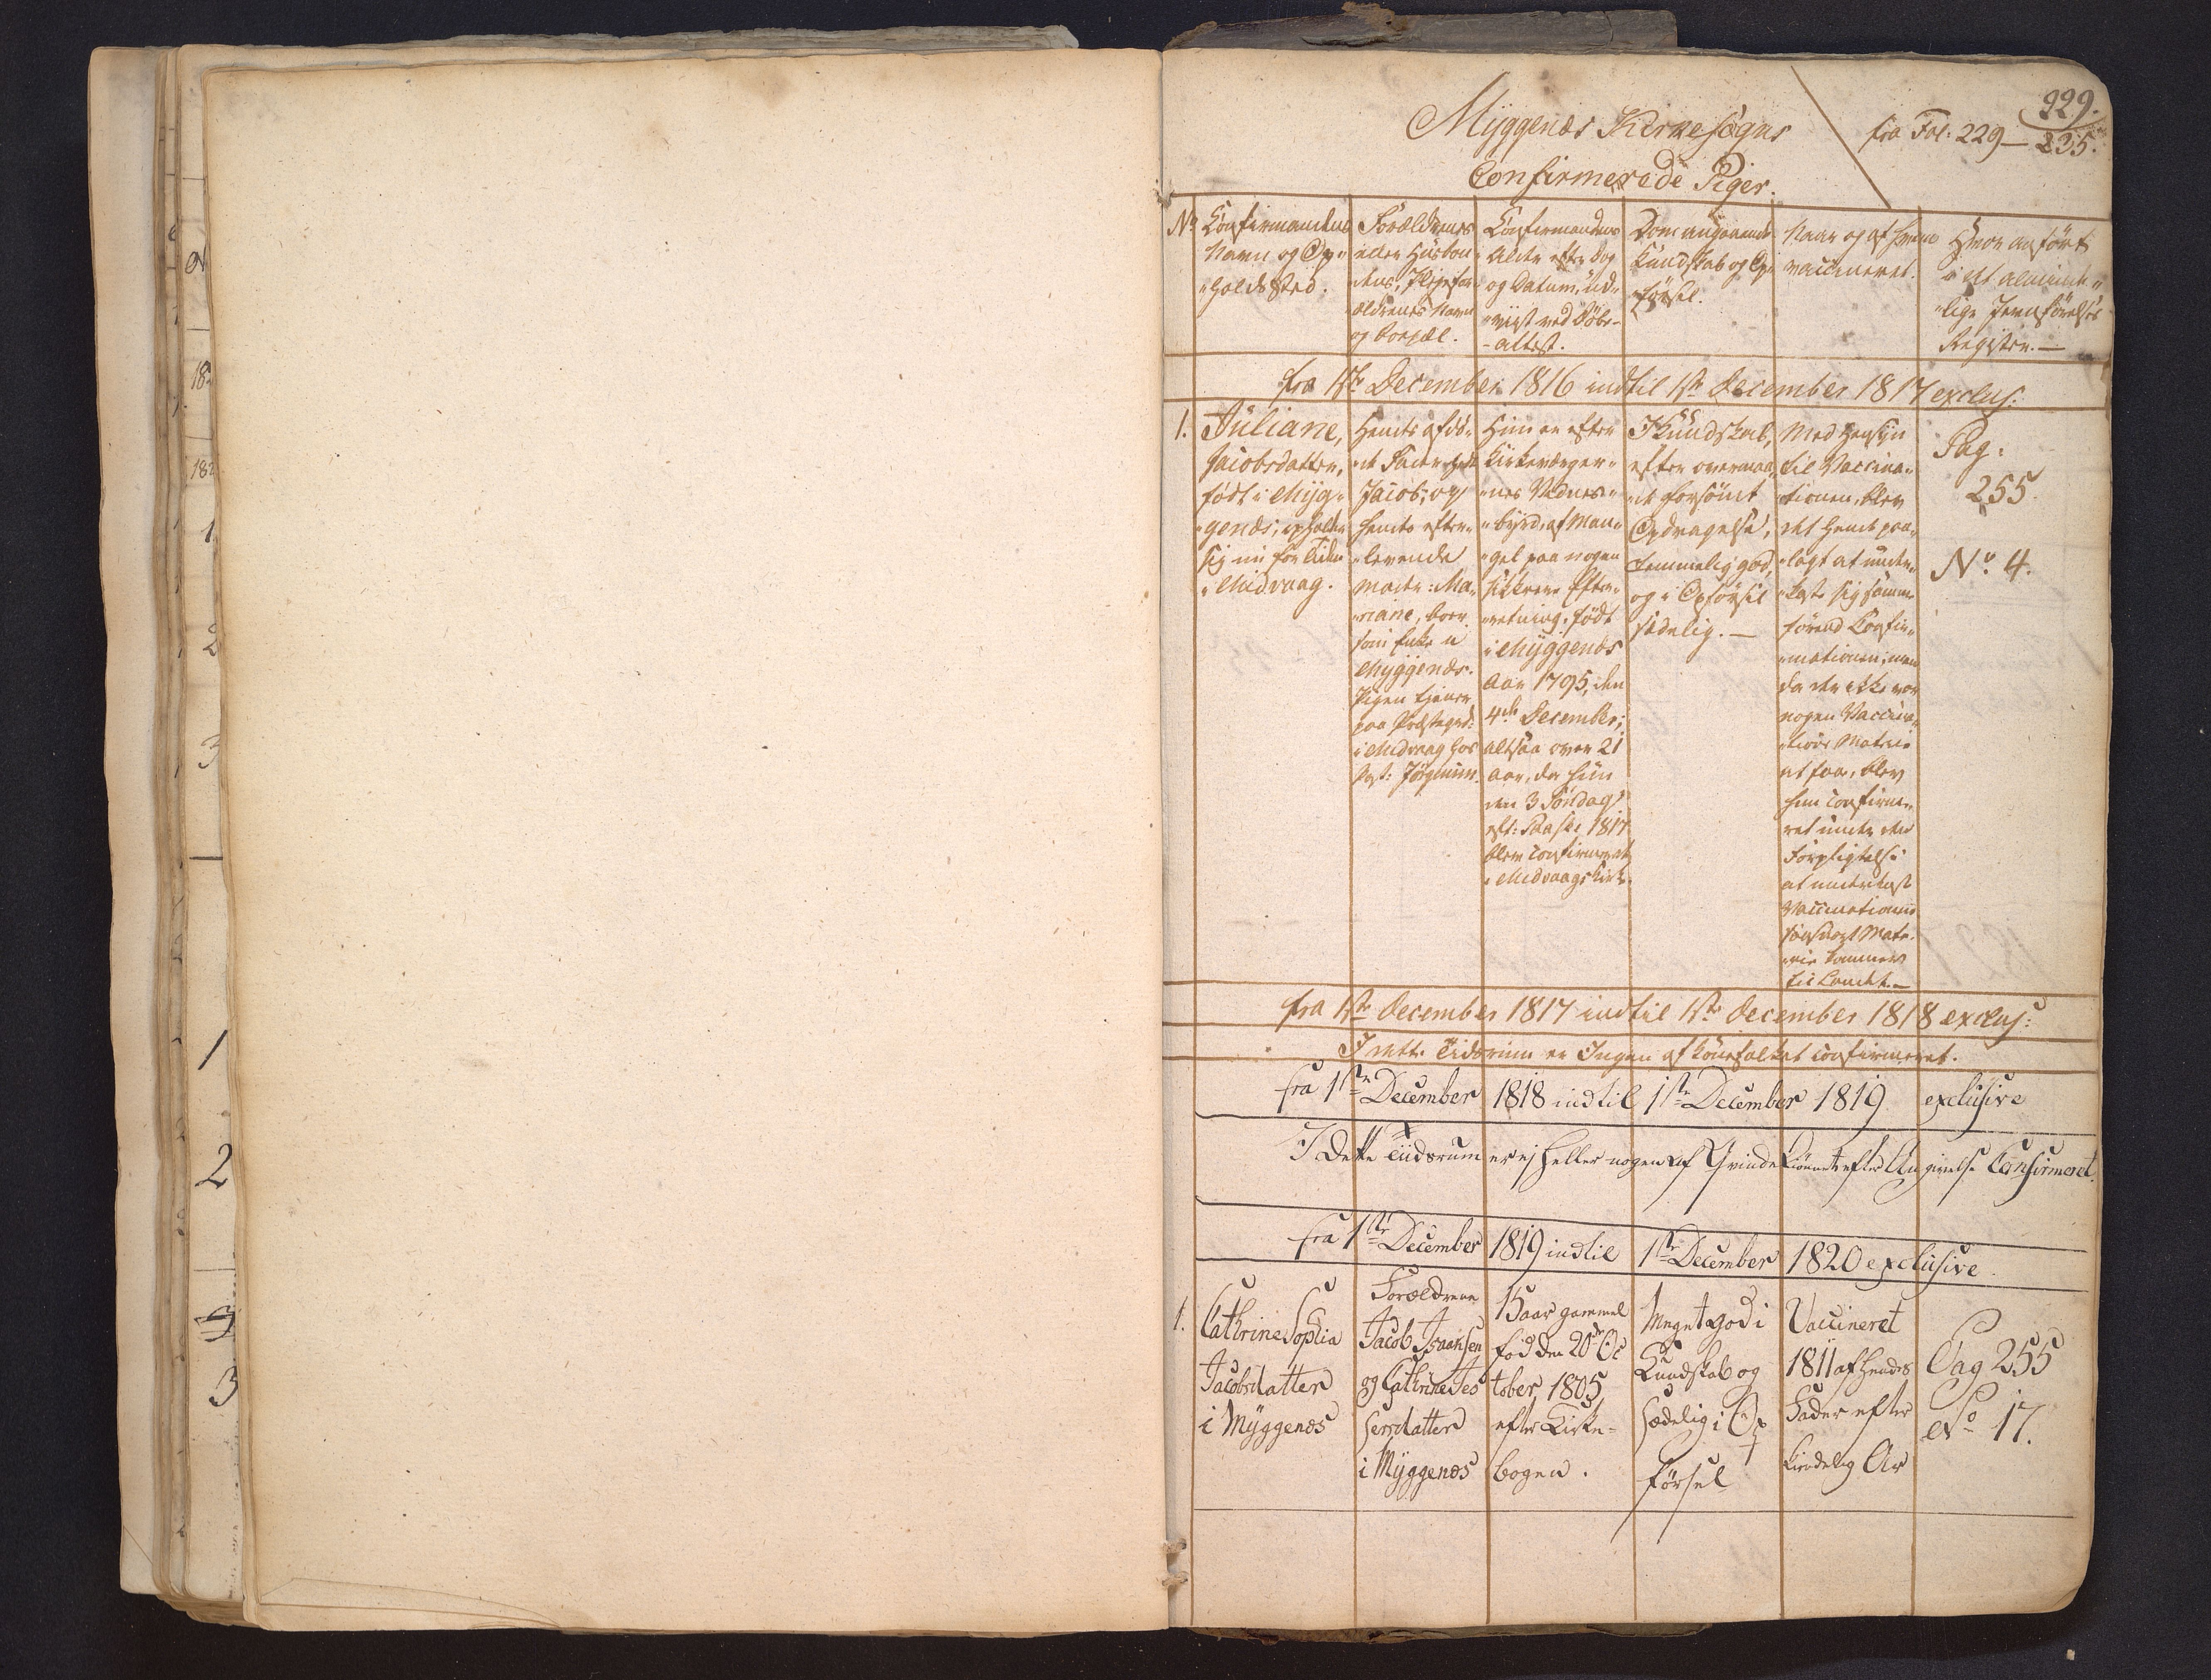 229.
Myggenæs Kirkesogns
fra Fol: 229 — 235.
Confirmerede Piger.
No
Confirmandens
Navn og Op-
holdsted.
Forældrenes
eller Husbon-
dens, Plejefor-
ældrenes Navn
og Boepæl.
Confirmandens
Alder efter Dag
og Datum, ud-
viist ved Døbe-
attest.
Dom angaaende
Kundskab og Op-
førsel.
Naar og af hvem
vaccineret.
Hvor anført
i det almind-
lige Jevnførelses
Register. —
fra 1ste December 1816 indtil 1ste December 1817 exclus:
1.
Juliane,
Jacobsdatter,
født i Myg-
genæs; opholder
sig nu for Tiden
i Midvaag.
Hendes afdø-
de Fader hedt
Jacob; og
hendes efter-
levende
Moder: Ma-
riane, boer
som Enke i
Myggenæs.
Pigen tjener
paa Præstegrd:
i Midvaag hos
Hun er efter
Kirkeværger-
nes Vidnes-
byrd, af Man-
gel paa nogen
sikkrere Efter-
retning, født
i Myggenæs
Aar 1795, den
4de December;
altsaa over 21
Aar, da hun
den 3 Søndag
eft: Paaske 1817
blev confirmeret
i Midvaags Kirke.
I Kundskab,
efter overmaa-
de forsømt
Opdragelse,
temmelig god,
og i Opførsel
sædelig. —
Med Hensyn
til Vaccina-
tionen, blev
det hende paa-
lagt at under-
kaste sig samme
førend Confir-
mationen; men
da der ikke var
nogen Vaccina-
tions Materie
at faae, blev
hun confirme-
ret under den
Forpligtelse
at underkaste
Vaccinationen
saasnart Mate-
rie kommer
til Landet. —
Pag:
255.
No 4.
fra 1ste December 1817 indtil 1ste December 1818 exclus:
I dette Tidsrum er Ingen af Kønfolket confirmeret.
fra 1ste December 1818 indtil 1ste December 1819 exclusive
I Dette Tiidsrum er ej heller nogen af Qvinde Kiønnet efter Angivelse Confirmeret.
fra 1ste December 1819 indtil 1ste December 1820 exclusive.
1.
Cathrine Sophia
Jacobsdatter
i Myggenæs
Forældrene
Jacob Isaaksen
og Cathrine Jes
sersdatter
i Myggenæs
15 aar gammel
fød den 20de Oc
tober 1805
efter Kirke-
bogen.
Meget god i
Kundskab og
sædelig i Op
førsel
Vaccineret
1811 af hendes
Fader efter
Pag 255
No 17.
18
182
1
2
3
1
2
3
3